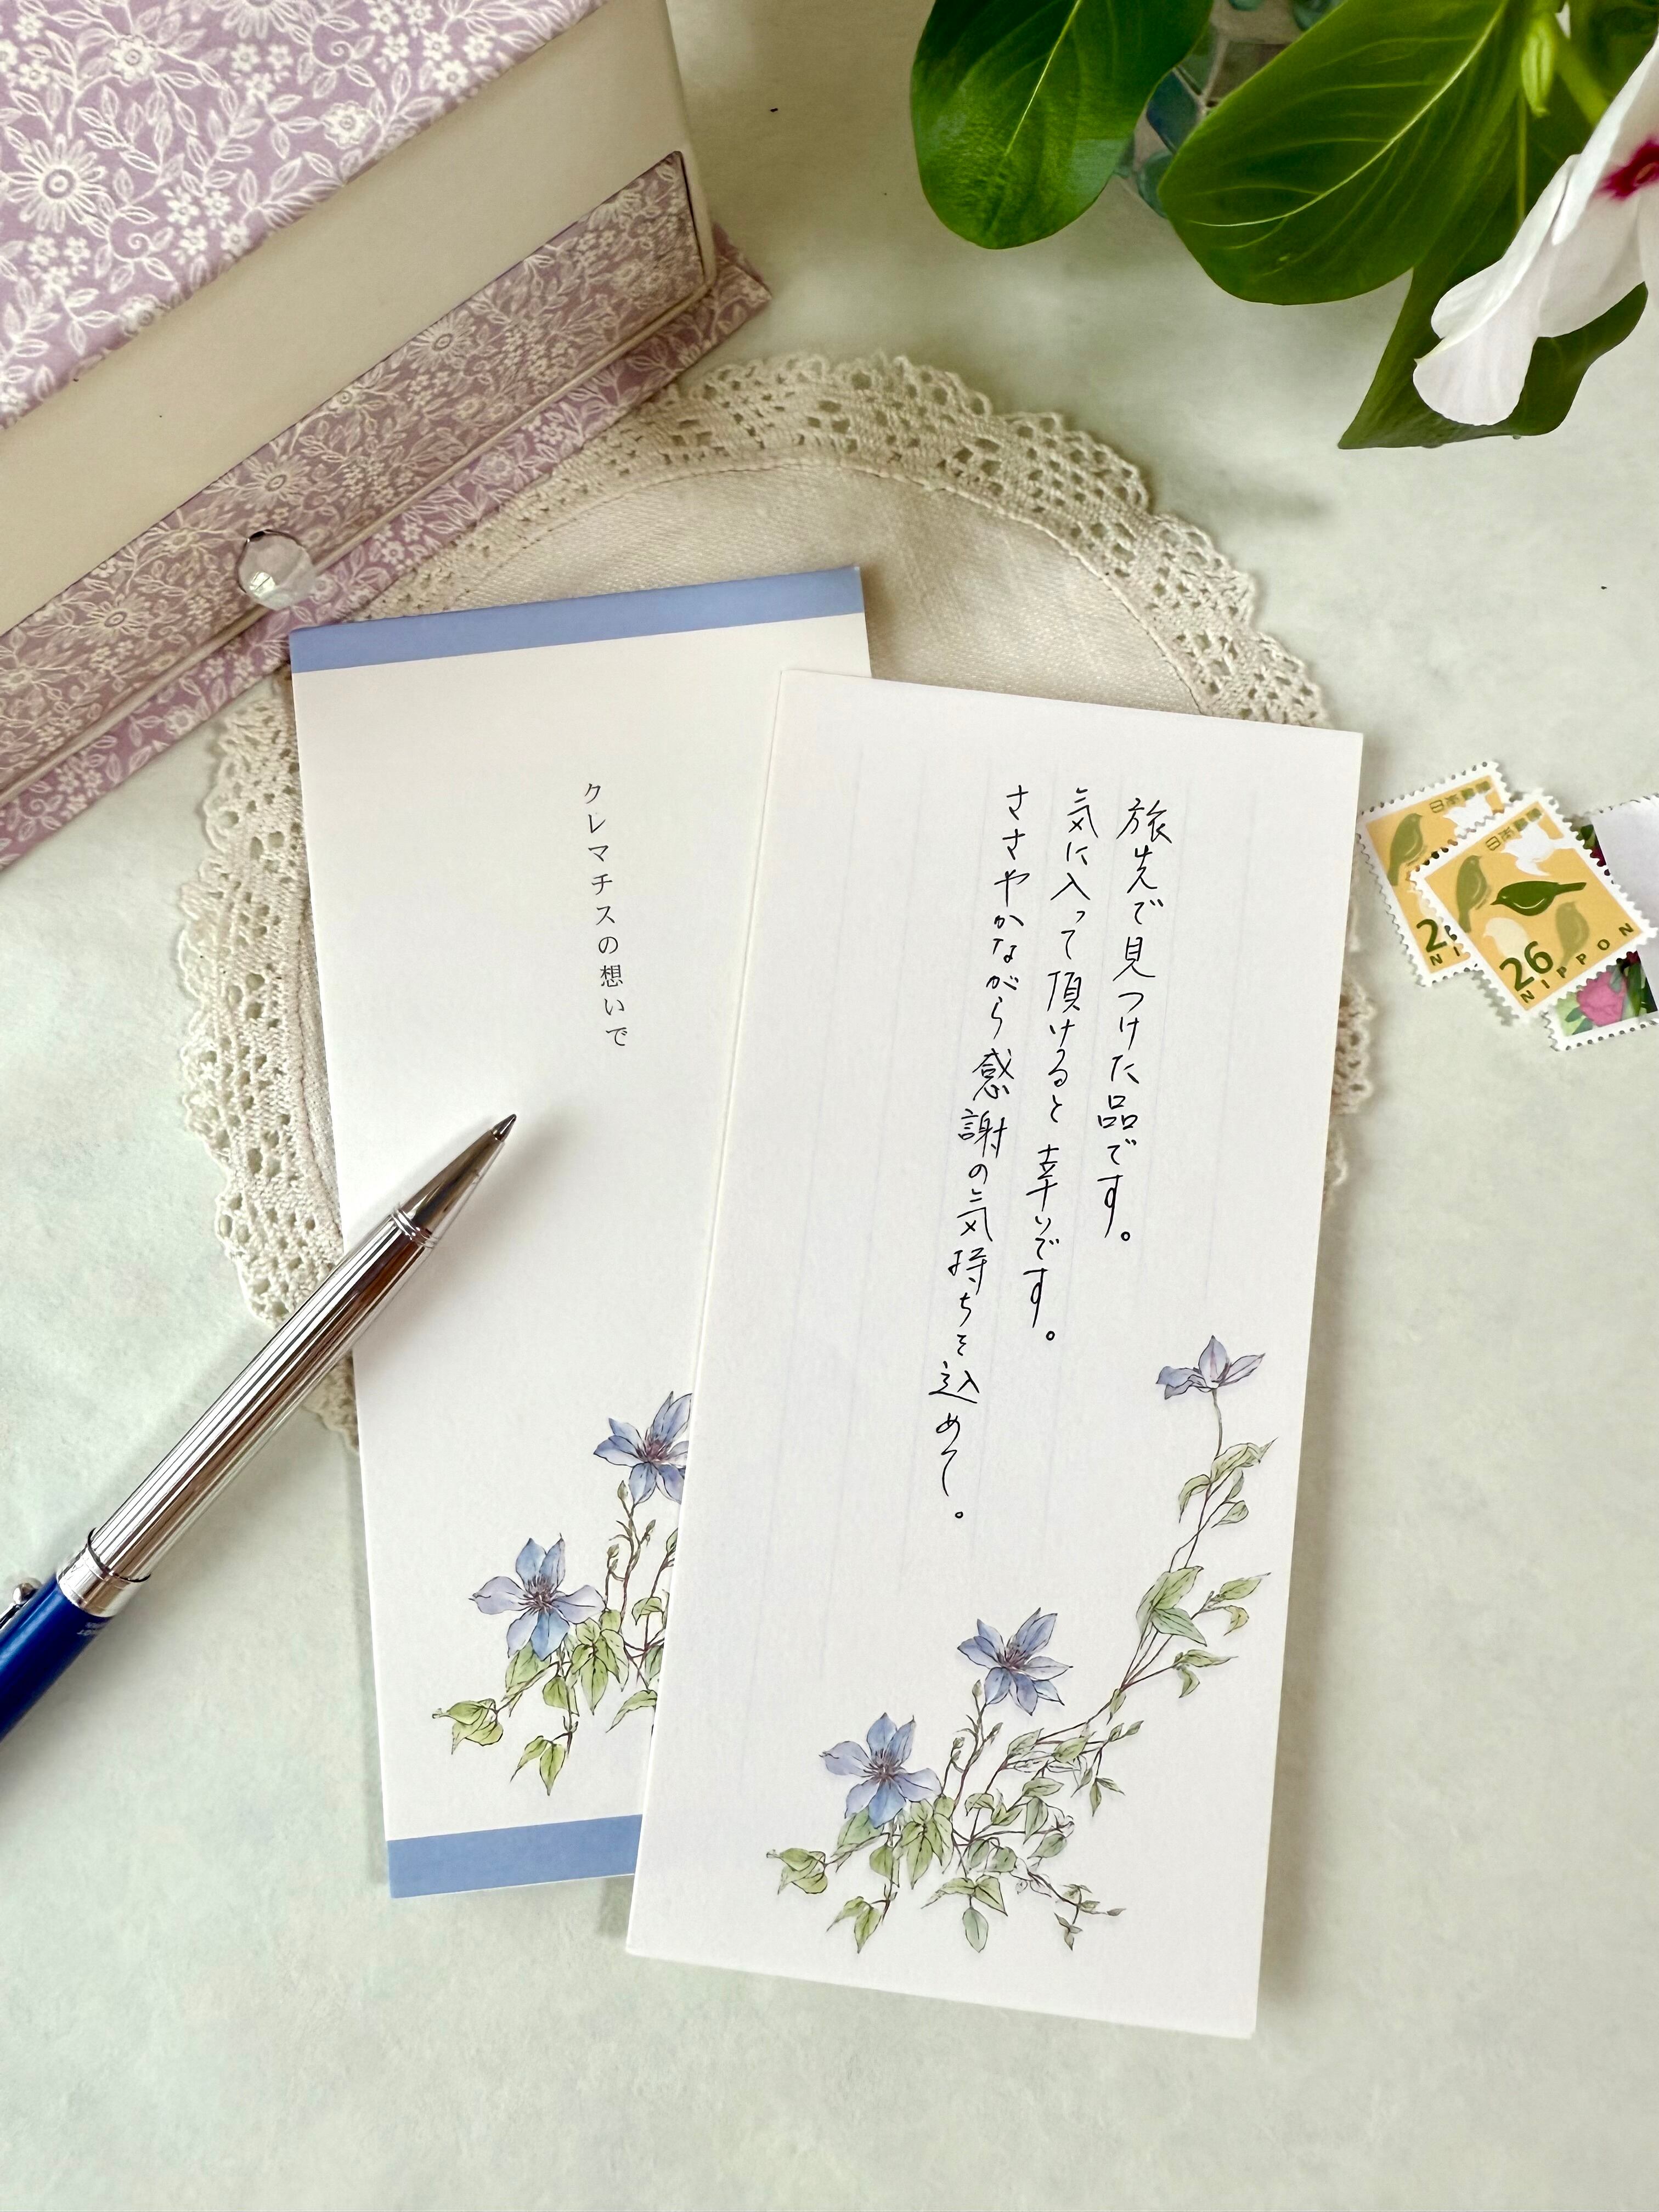 旅先で見つけた品です。
気に入って頂けると幸いです。
ささやかながら感謝の気持ちを込めて。
クレマチスの想いで
日本郵便
2
NI
日本郵便
26
NIPPON